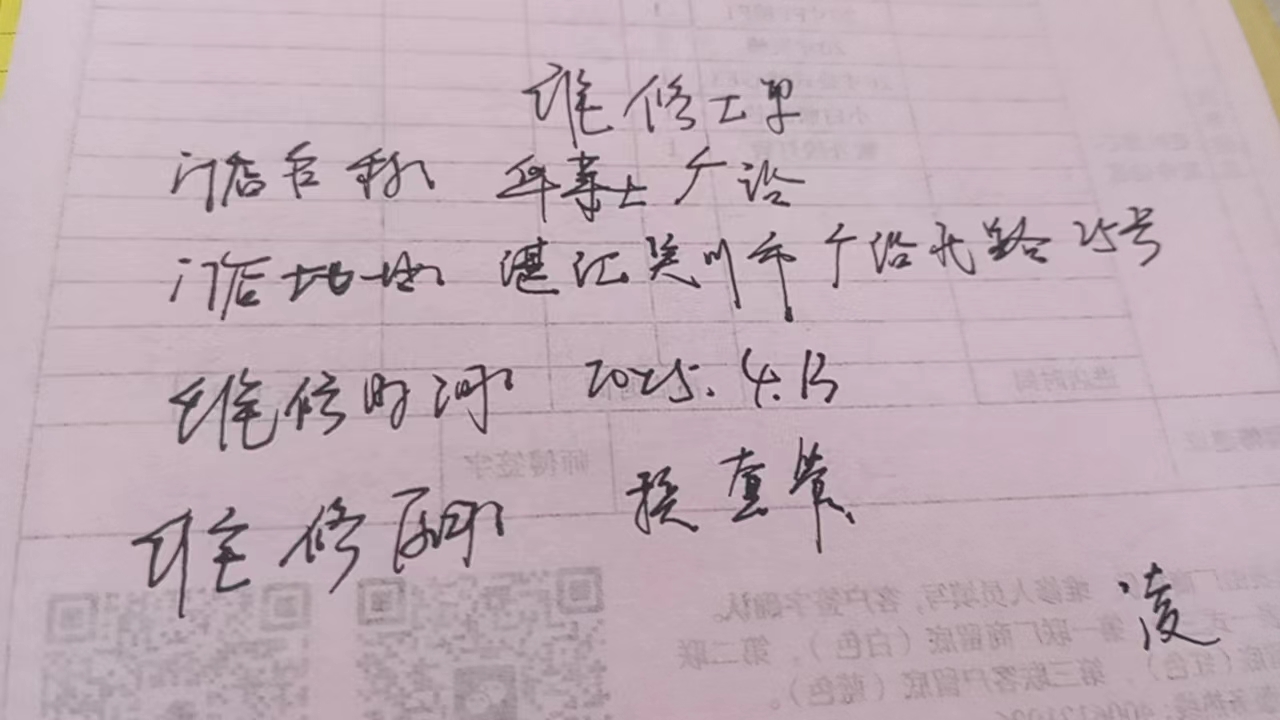 维修工单
门店名称: 华莱士广沿
门店地址: 湛江吴川市广沿北路25号
维修时间: 2025.4.13
维修原因: 换直管
凌
师傅签字
维修人员填写,客户签字确认。
第一联厂商留底(白色),第二联
(红色),第三联客户留底(蓝色)。